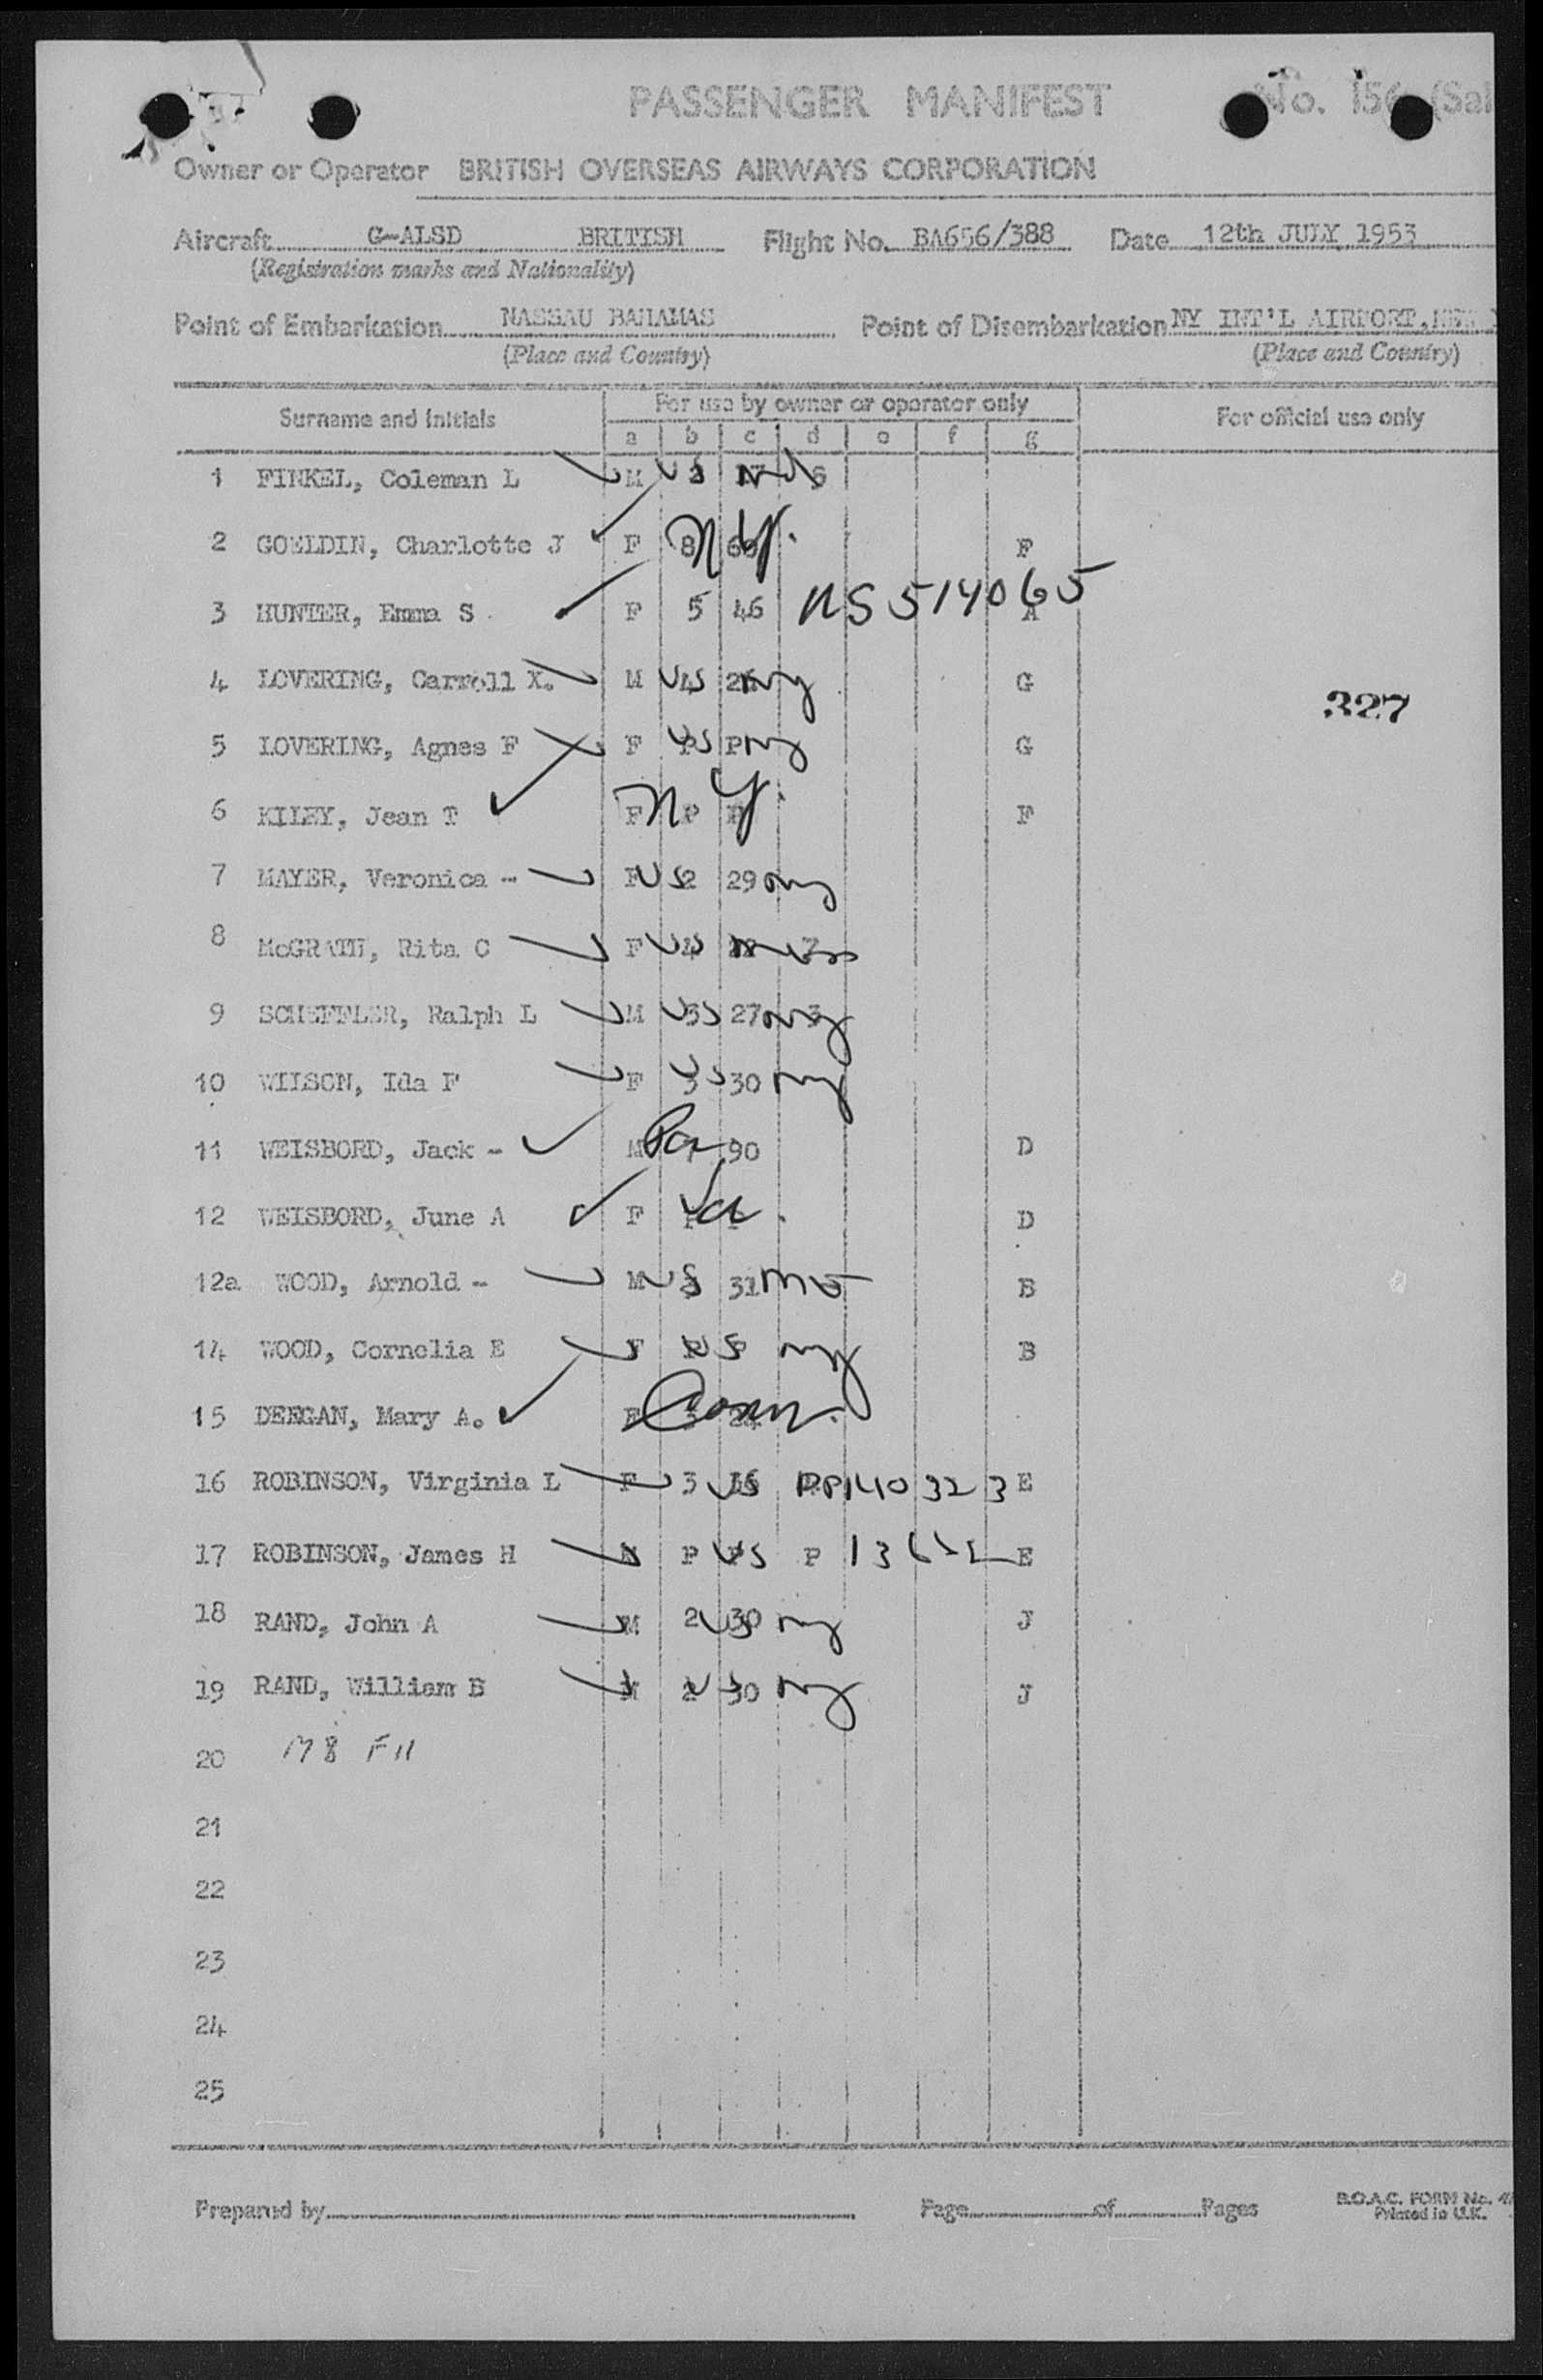 PASSENGER MANIFEST No. 156 (Sal
Owner or Operator BRITISH OVERSEAS AIRWAYS CORPORATION
Aircraft G-ALSD BRITISH Flight No. BA656/388 Date 12th JULY 1953
(Registration marks and Nationality)
Point of Embarkation NASSAU BAHAMAS Point of Disembarkation NY INT'L AIRPORT,
(Place and Country) (Place and Country)
Surname and initials For use by owner or operator only For official use only
a b c d e f g
1 FINKEL, Coleman L M
2 GOELDIN, Charlotte J F 8 N.Y. F
3 HUNTER, Emma S F 5 46 NS 514065 A
4 LOVERING, Carroll X. M US 4 NY G
327
5 LOVERING, Agnes F F US P NY G
6 KILEY, Jean T F P P N Y. F
7 MAYER, Veronica - F US 2 29 NY
8 McGRATH, Rita C F US
9 SCHEFFLER, Ralph L M US 27 NY
10 WILSON, Ida F F US 30 NY
11 WEISBORD, Jack - M Pa 90 D
12 WEISBORD, June A F D
12a WOOD, Arnold - M US 31 B
14 WOOD, Cornelia E F US P NY B
15 DEEGAN, Mary A. F Conn.
16 ROBINSON, Virginia L F 3 US PP140323 E
17 ROBINSON, James H M P US P E
18 RAND, John A M 2 US 30 NY J
19 RAND, William B M 2 US 30 NY J
20 M 8 F 11
21
22
23
24
25
Prepared by Page of Pages B.O.A.C. FORM No.
Printed in U.K.